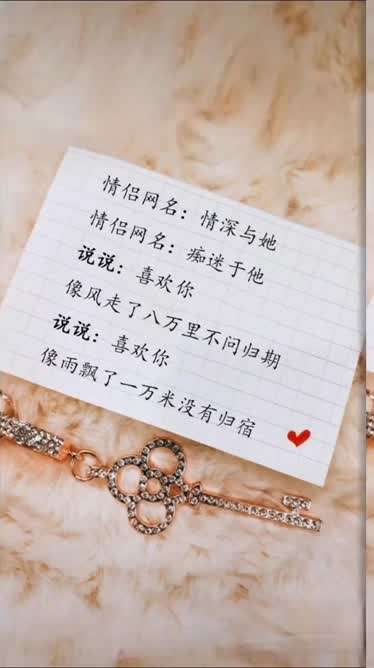 情侣网名：情深与她
情侣网名：痴迷于他
说说：喜欢你
像风走了八万里不问归期
说说：喜欢你
像雨飘了一万米没有归宿